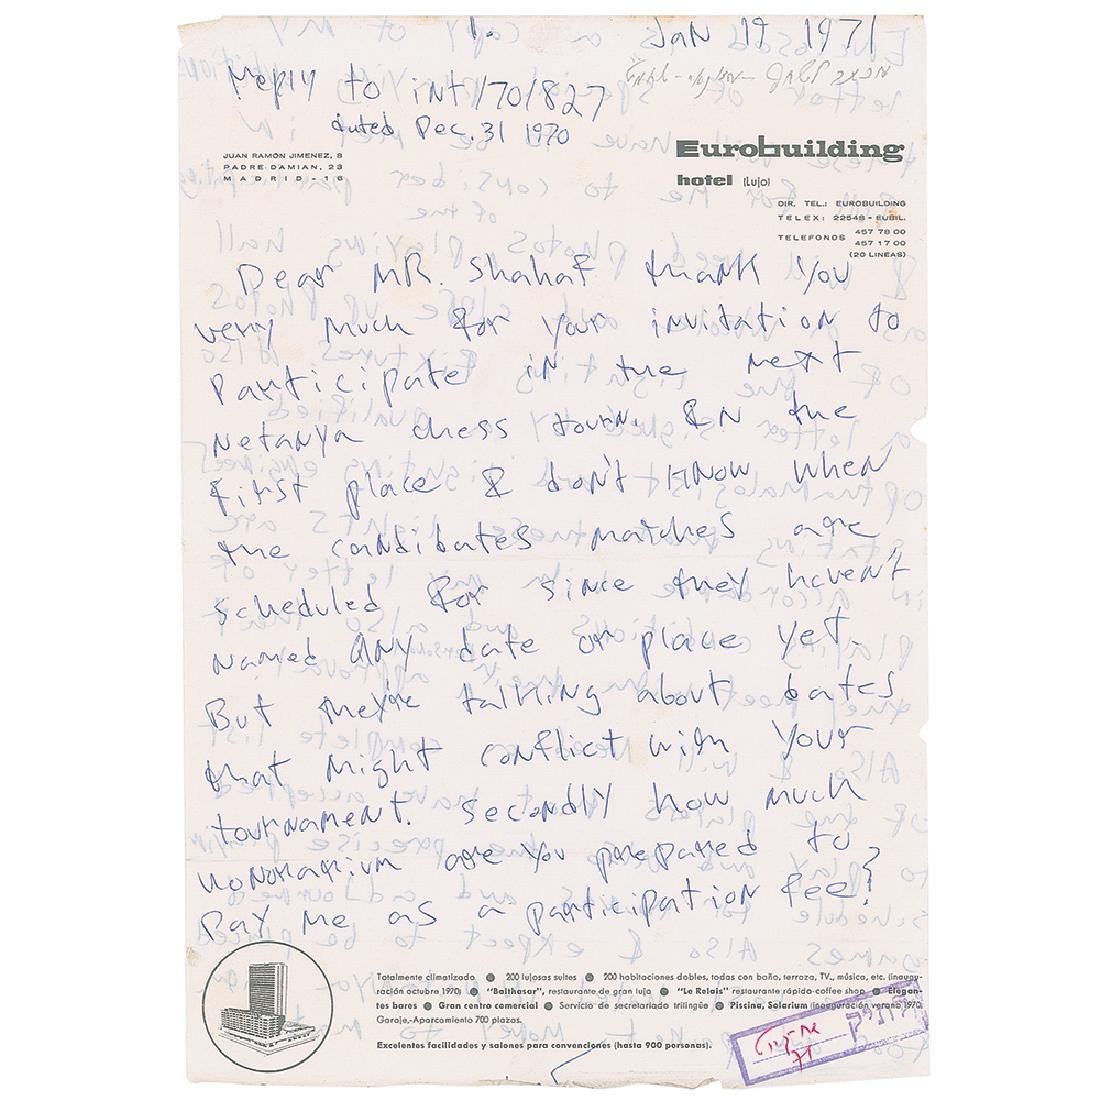 Jan 19 1971
reply to int/70/827
dated Dec. 31 1970
JUAN RAMON JIMENEZ, 8
PADRE DAMIAN, 23
MADRID - 16
Eurobuilding
hotel (Lujo)
DIR. TEL.: EUROBUILDING
TELEX: 22548 - EUBIL.
TELEFONOS 457 78 00
457 17 00
(20 LINEAS)
Dear MR. Shahaf thank you
very much for your invitation to
participate in the next
netanya chess tourn. In the
first place I don't know when
the candidates matches are
scheduled for since they haven't
named any date or place yet.
But they're talking about dates
that might conflict with your
tournament. Secondly how much
honorarium are you prepared to
pay me as a participation fee?
Totalmente climatizado ● 200 lujosas suites ● 200 habitaciones dobles, todas con baño, terraza, TV., música, etc. (inaugu-
ración octubre 1970) ● "Balthasar", restaurante de gran lujo ● "Le Relais" restaurante rápido-coffee shop ● Elegan-
tes bares ● Gran centro comercial ● Servicio de secretariado trilingüe ● Piscina, Solarium (inauguración verano 1970)
Garaje-Aparcamiento 700 plazas.
Excelentes facilidades y salones para convenciones (hasta 900 personas).
71